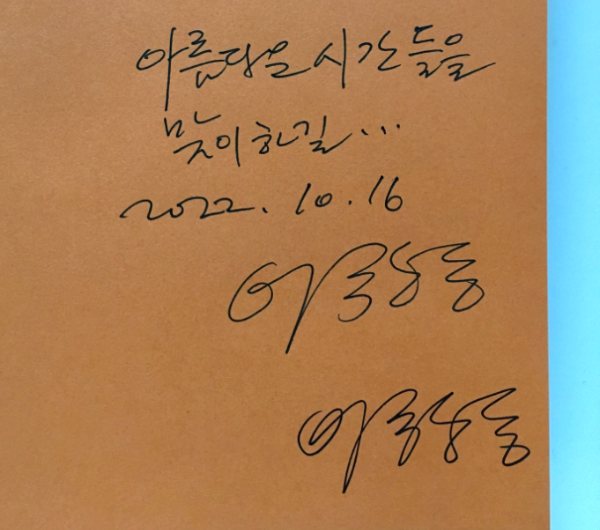 아름다운 시간들을
맞이하길...
2022. 10. 16